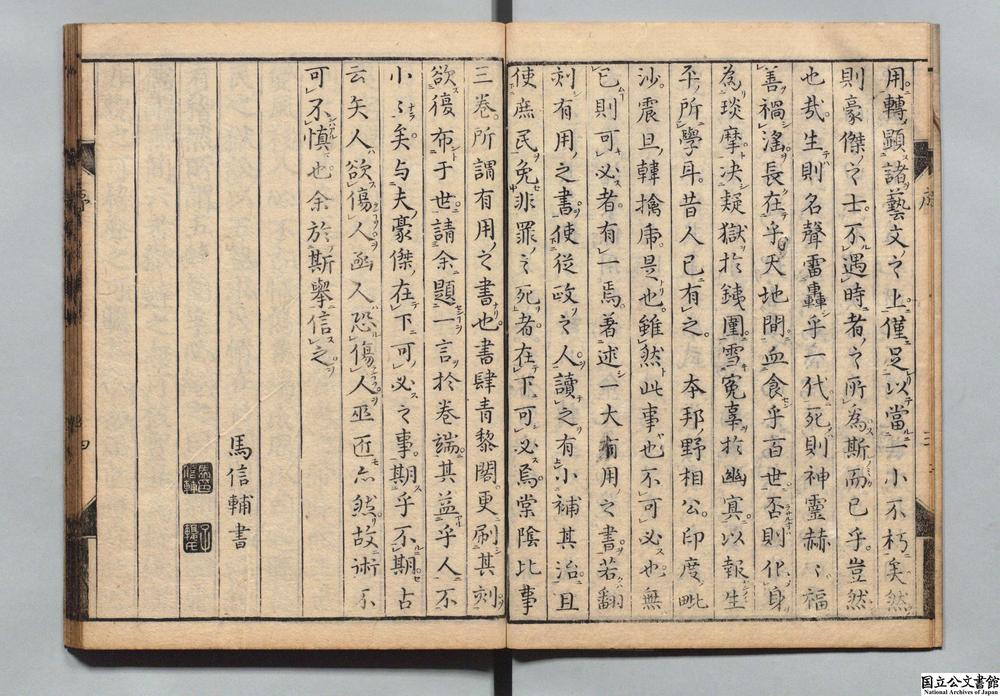 用轉顯諸藝文之上僅足以當一小不朽矣然
則豪傑之士不遇時者之所為斯而已乎豈然
也哉生則名聲雷轟乎一代死則神靈赫〻福
善禍淫長在乎天地間血食乎百世否則化身
為琰摩决疑獄於銕圍雪冤辜於幽冥以報生
平所學耳昔人已有之 本邦野相公印度毗
沙震旦韓擒虎是也雖然此事也不可必也無
已則可必者有一焉著述一大有用之書若翻
刻有用之書使從政之人讀之有小補其治且
使庶民免非罪之死者在下可必焉棠陰比事
三卷所謂有用之書也書肆青黎閣更刷其刻
欲復布于世請余題一言於卷端其益乎人不
小〻矣与夫豪傑在下可必之事期乎不期古
云矢人欲傷人函人恐傷人巫匠亦然故術不
可不慎也余於斯舉信之
馬信輔書
序
三
序
四
国立公文書館
National Archives of Japan